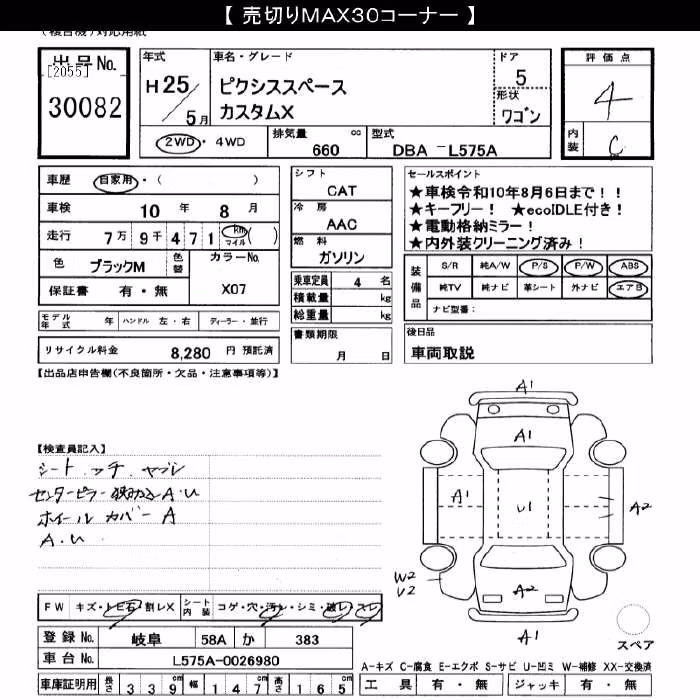 【 売切りMAX30コーナー 】
(複合機)対応用紙
出品No. [2055] 30082
年式 H 25 / 5 月
車名・グレード ピクシススペース カスタムX
ドア 5
形状 ワゴン
評価点 4
内装 C
2WD・4WD
排気量 660 cc
型式 DBA -L575A
車歴 自家用・( )
車検 10 年 8 月
走行 7万 9千 4 7 1 km マイル ( )
色 ブラックM 色替 カラーNo. X07
保証書 有・無
モデル年式 年 ハンドル 左・右 ディーラー・並行
リサイクル料金 8,280 円 預託済
シフト CAT
冷房 AAC
燃料 ガソリン
乗車定員 4 名
積載量 kg
総重量 kg
書類期限 月 日
セールスポイント
★車検令和10年8月6日まで！！
★キーフリー！ ★ecoIDLE付き！
★電動格納ミラー！
★内外装クリーニング済み！
装備品 S/R 純A/W P/S P/W ABS
純TV 純ナビ 革シート 外ナビ エアB
ナビ型番：
後日品
車両取説
【出品店申告欄(不良箇所・欠品・注意事項等)】
【検査員記入】
シート コゲ ヤブレ
センターピラー 狭込 A・U
ホイール カバー A
A・U
A1
A1
A1 U1 A2
W2
U2
A2
A1
スペア
FW キズ・トビ石・割レX シート内装 コゲ・穴・汚レ・シミ・破レ・スレ
登録No. 岐阜 58A か 383
車台No. L575A-0026980
車庫証明用 長さ 3 3 9 cm 幅 1 4 7 cm 高さ 1 6 5 cm
A-キズ C-腐食 E-エクボ S-サビ U-凹ミ W-補修 XX-交換済
工具 有・無 ジャッキ 有・無